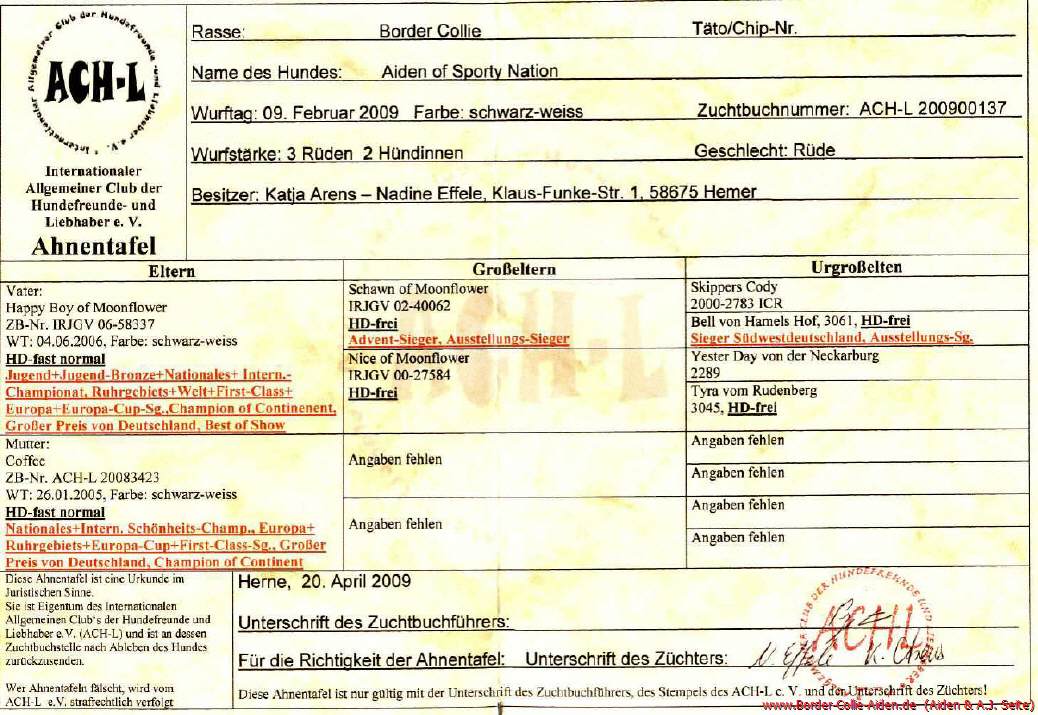 Internationaler Allgemeiner Club der Hundefreunde und Liebhaber e.V.
ACH-L
Internationaler
Allgemeiner Club der
Hundefreunde- und
Liebhaber e. V.
Ahnentafel
Rasse: Border Collie Täto/Chip-Nr.
Name des Hundes: Aiden of Sporty Nation
Wurftag: 09. Februar 2009 Farbe: schwarz-weiss Zuchtbuchnummer: ACH-L 200900137
Wurfstärke: 3 Rüden 2 Hündinnen Geschlecht: Rüde
Besitzer: Katja Arens – Nadine Effele, Klaus-Funke-Str. 1, 58675 Hemer
Eltern
Vater:
Happy Boy of Moonflower
ZB-Nr. IRJGV 06-58337
WT: 04.06.2006, Farbe: schwarz-weiss
HD-fast normal
Jugend+Jugend-Bronze+Nationales+ Intern.-
Championat, Ruhrgebiets+Welt+First-Class+
Europa+Europa-Cup-Sg.,Champion of Continenent,
Großer Preis von Deutschland, Best of Show
Mutter:
Coffee
ZB-Nr. ACH-L 20083423
WT: 26.01.2005, Farbe: schwarz-weiss
HD-fast normal
Nationales+Intern. Schönheits-Champ., Europa+
Ruhrgebiets+Europa-Cup+First-Class-Sg., Großer
Preis von Deutschland, Champion of Continent
Großeltern
Schawn of Moonflower
IRJGV 02-40062
HD-frei
Advent-Sieger, Ausstellungs-Sieger
Nice of Moonflower
IRJGV 00-27584
HD-frei
Angaben fehlen
Angaben fehlen
Urgroßelten
Skippers Cody
2000-2783 ICR
Bell von Hamels Hof, 3061, HD-frei
Sieger Südwestdeutschland, Ausstellungs-Sg.
Yester Day von der Neckarburg
2289
Tyra vom Rudenberg
3045, HD-frei
Angaben fehlen
Angaben fehlen
Angaben fehlen
Angaben fehlen
ACH-L
Diese Ahnentafel ist eine Urkunde im
Juristischen Sinne.
Sie ist Eigentum des Internationalen
Allgemeinen Club's der Hundefreunde und
Liebhaber e.V. (ACH-L) und ist an dessen
Zuchtbuchstelle nach Ableben des Hundes
zurückzusenden.
Wer Ahnentafeln fälscht, wird vom
ACH-L e.V. strafrechtlich verfolgt
Herne, 20. April 2009
Unterschrift des Zuchtbuchführers:
Für die Richtigkeit der Ahnentafel: Unterschrift des Züchters: N. Effele
ACH-L
Diese Ahnentafel ist nur gültig mit der Unterschrift des Zuchtbuchführers, des Stempels des ACH-L e. V. und der Unterschrift des Züchters!
www.Border-Collie-Aiden.de (Aiden & A.J. Seite)